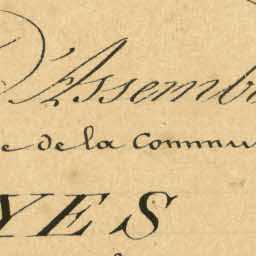 D'Assemb
e de la Commu
YES